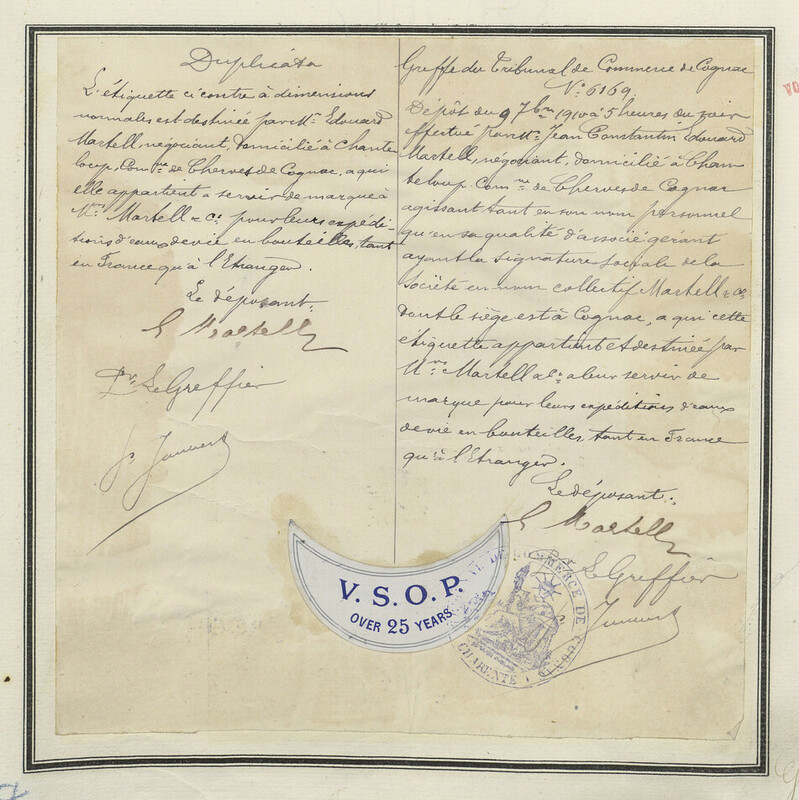 Duplicata
L'étiquette ci contre à dimensions
normales est destinée par Mr. Edouard
Martell, négociant, domicilié à Chante
loup, Comne de Cherves de Cognac, a qui
elle appartient a servir de marque à
Mrs Martell & Co. pour leurs expédi-
tions d'eaux de vie en bouteilles, tant
en France qu'à l'Etranger.
Le déposant:
E Martell
Pr. Le Greffier
Greffe du Tribunal de Commerce de Cognac
No. 6169.
Dépôt du 9 7bre 1910 à 5 heures du soir
effectué par Mr. Jean Constantin Edouard
Martell, négociant, domicilié à Chan
teloup. Comne de Cherves de Cognac
agissant tant en son nom personnel
qu'en sa qualité d'associé gérant
ayant la signature sociale de la
Société en nom collectif Martell & Co.
dont le siège est à Cognac, a qui cette
étiquette appartient et destinée par
Mrs Martell & Co. a leur servir de
marque pour leurs expéditions d'eaux
de vie en bouteilles tant en France
qu'à l'Etranger.
Le déposant:
E Martell
Pr Le Greffier
V.S.O.P.
OVER 25 YEARS
TRIBUNAL DE COMMERCE DE COGNAC
CHARENTE
VO